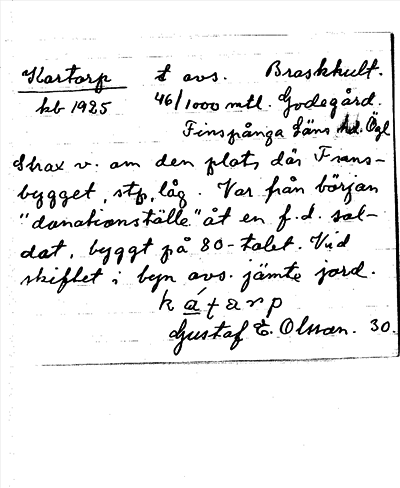 Kartorp t avs. Braskhult.
kb 1925 46/1000 mtl. Godegård.
Finspånga läns hd. Ögl
Strax v. om den plats där Frans-
bygget, stp, låg. Var från början
"donationställe" åt en f.d. sol-
dat, byggt på 80-talet. Vid
skiftet i byn avs. jämte jord.
Gustaf E. Olsson. 30.